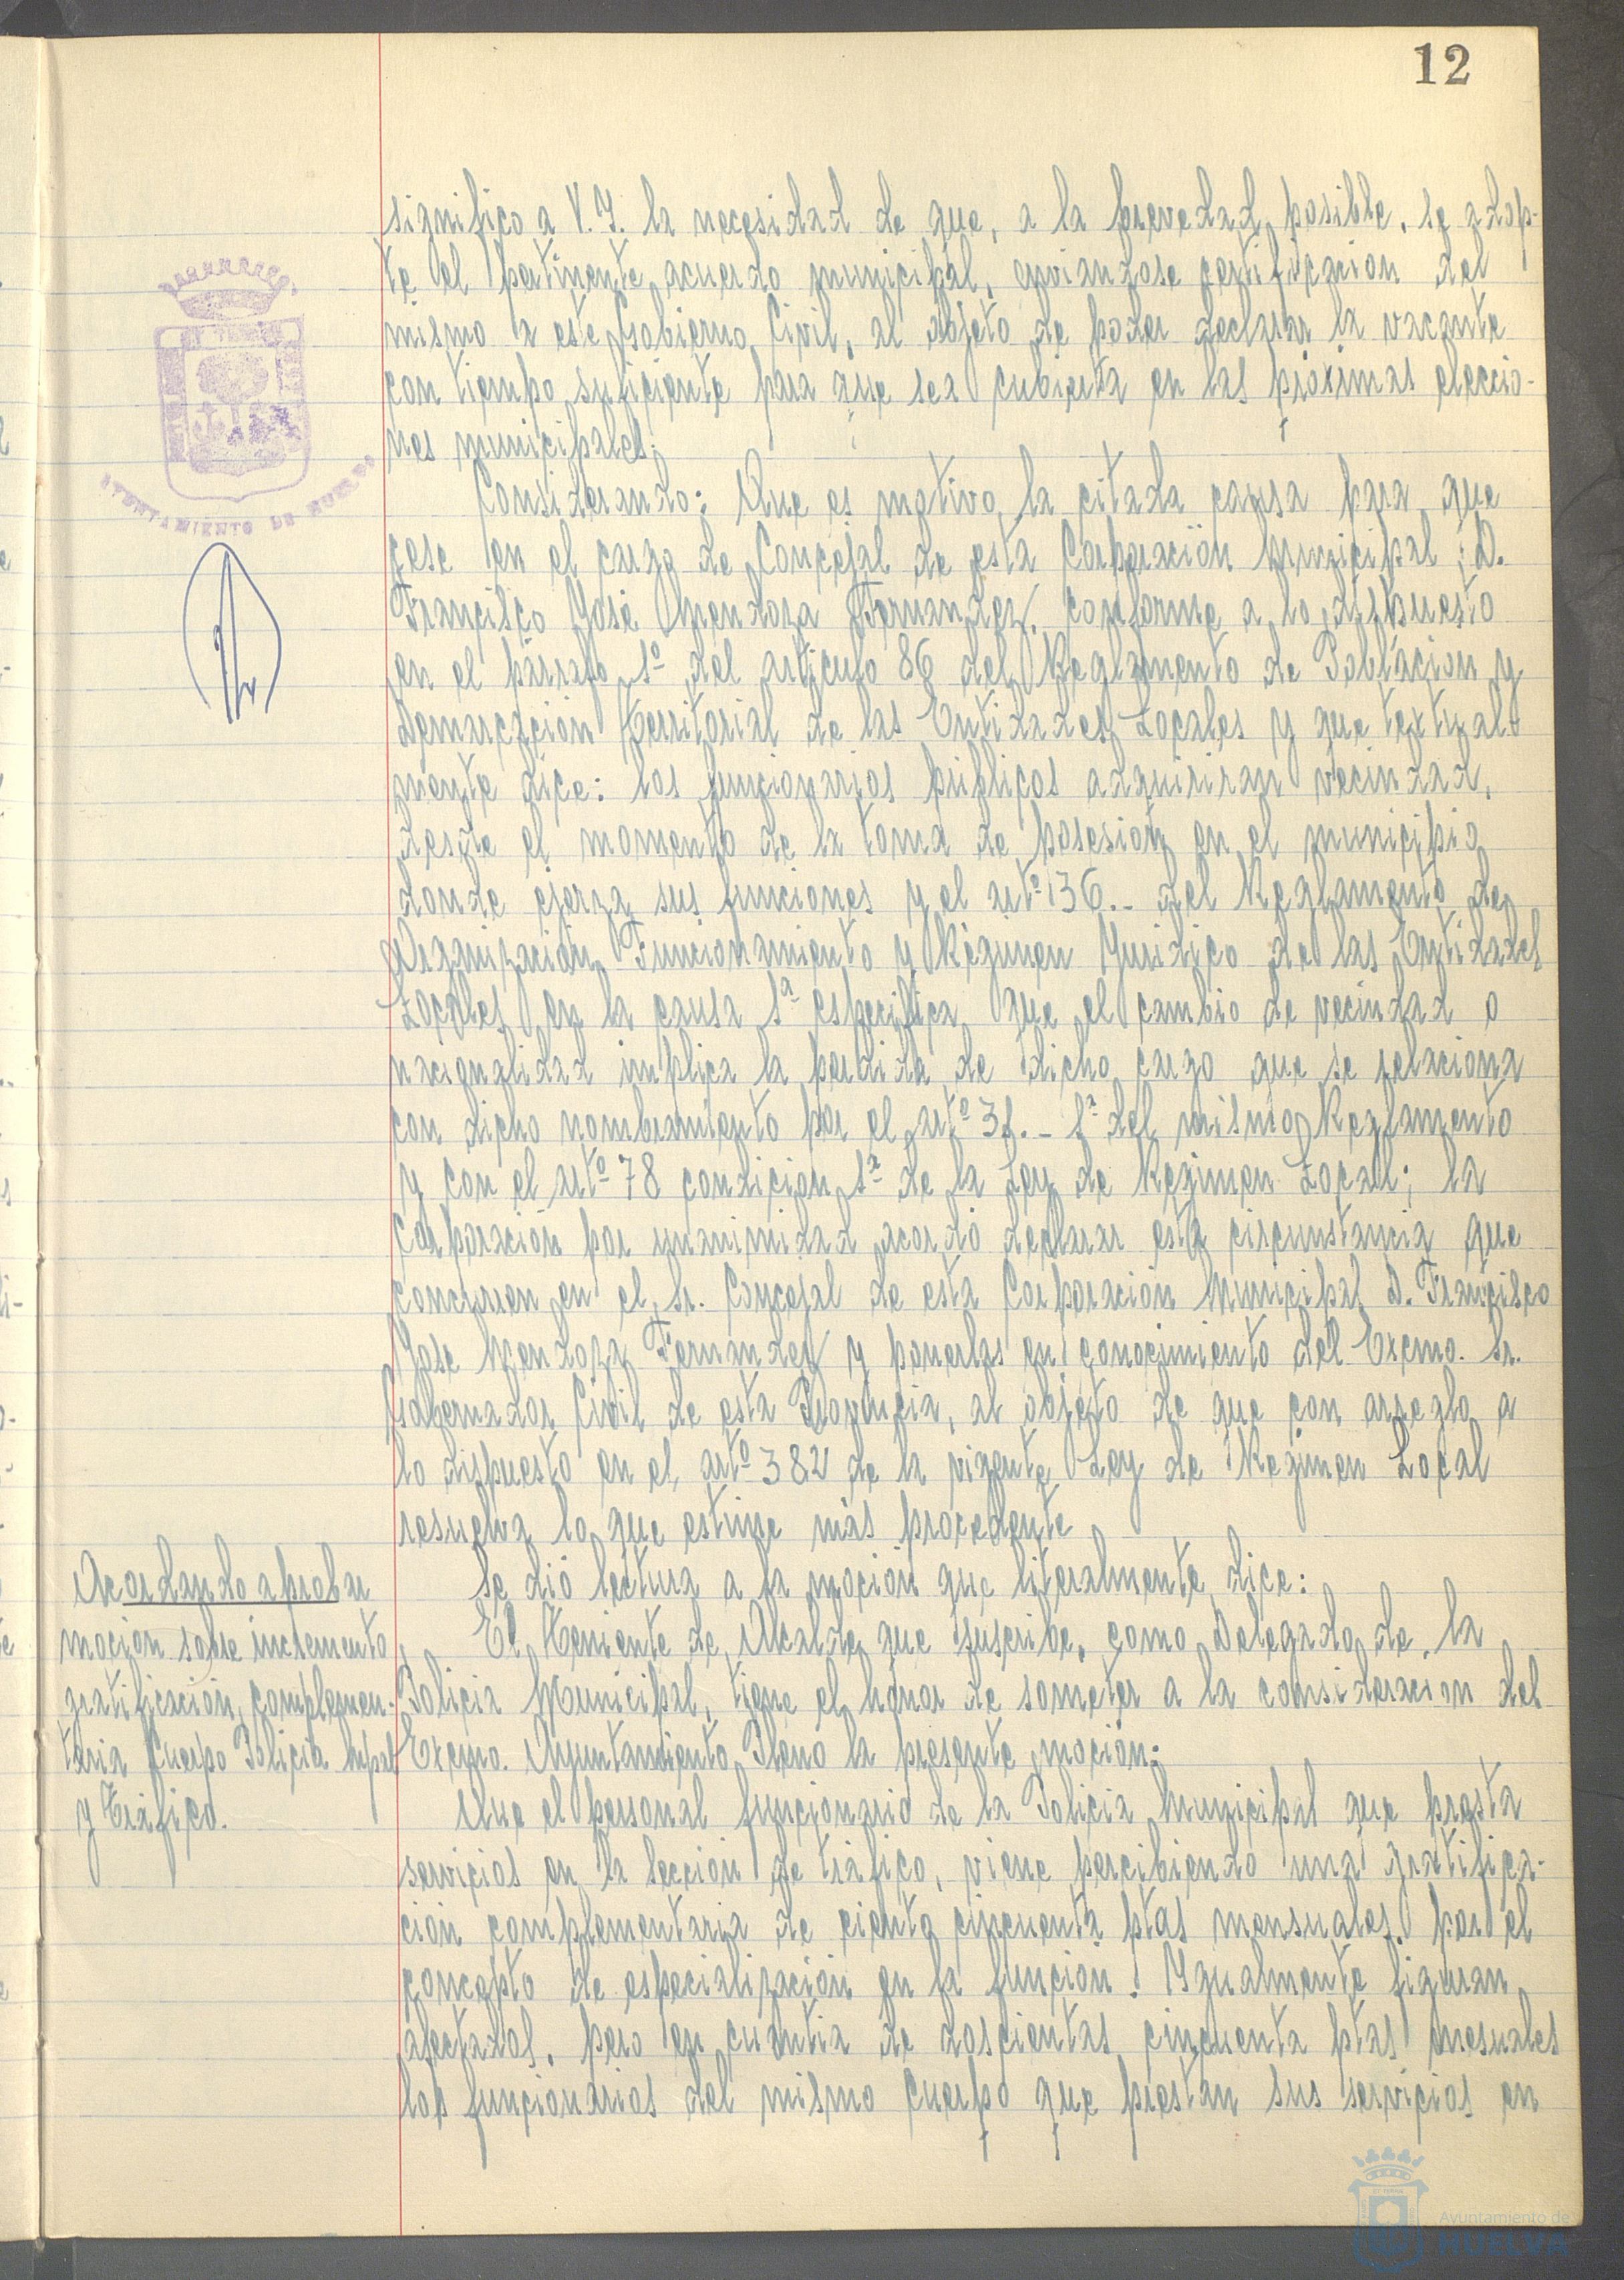 12
significo a V.I. la necesidad de que, a la brevedad posible, se adop-
te el pertinente acuerdo municipal, enviandose certificacion del
mismo a este Gobierno Civil, al objeto de poder declarar la vacante
con tiempo suficiente para que sea cubierta en las próximas eleccio-
nes municipales.
Considerando: Que es motivo la citada causa para que
cese en el cargo de Concejal de esta Corporación Municipal, D.
Francisco José Mendoza Fernandez, conforme a lo dispuesto
en el párrafo 1º del articulo 86 del Reglamento de Poblacion y
Demarcación Territorial de las Entidades Locales y que textual-
mente dice: los funcionarios públicos adquiriran vecindad,
desde el momento de la toma de posesión en el municipio
donde ejerza sus funciones y el artº 136.- del Reglamento de
Organización, Funcionamiento y Régimen Juridico de las Entidades
Locales en la causa 1ª especifica que el cambio de vecindad o
nacionalidad implica la perdida de dicho cargo que se relaciona
con dicho nombramiento por el artº 31.- 1ª del mismo Reglamento
y con el artº 78 condicion 1ª de la Ley de Regimen Local; la
Corporación por unanimidad acordó declarar esta circunstancia que
concurren en el Sr. Concejal de esta Corporación Municipal D. Francisco
Jose Mendoza Fernandez y ponerlas en conocimiento del Excmo. Sr.
Gobernador Civil de esta Provincia, al objeto de que con arreglo a
lo dispuesto en el artº 382 de la vigente Ley de Régimen Local
resuelva lo que estime más procedente
Acordando aprobar
moción sobre incremento
gratificación complemen-
taria Cuerpo Policia Mpal
y Tráfico.
Se dió lectura a la moción que literalmente dice:
El Teniente de Alcalde que suscribe, como Delegado de la
Policia Municipal, tiene el honor de someter a la consideracion del
Excmo. Ayuntamiento Pleno la presente moción:
Que el personal funcionario de la Policia Municipal que presta
servicios en la sección de tráfico, viene percibiendo una gratifica-
ción complementaria de ciento cincuenta ptas mensuales, por el
concepto de especialización en la función. Igualmente figuran
afectados, pero en cuantia de doscientas cincuenta ptas mesuales
los funcionarios del mismo Cuerpo que prestan sus servicios en
AYUNTAMIENTO DE HUELVA
Ayuntamiento de
HUELVA